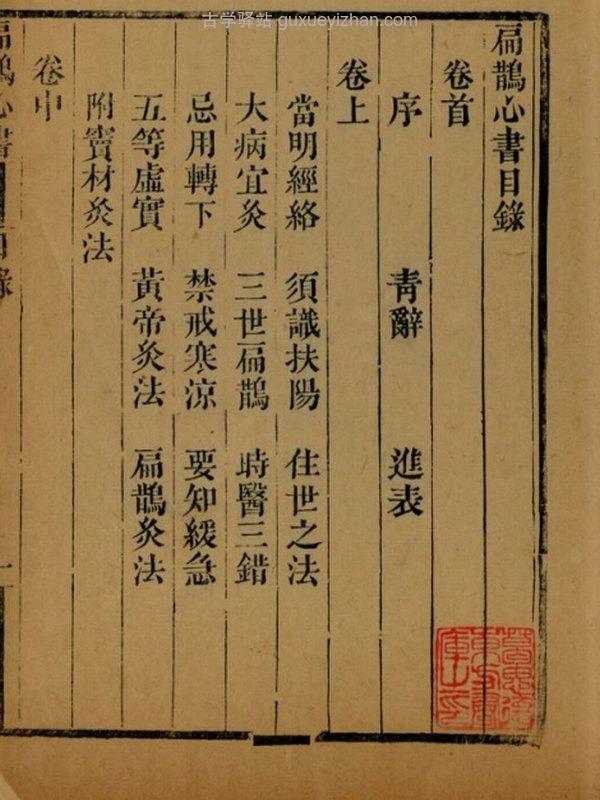 古学驿站 guxueyizhan.com
扁鵲心書目錄
卷首
序 青辭 進表
卷上
當明經絡 須識扶陽 住世之法
大病宜灸 三世扁鵲 時醫三錯
忌用轉下 禁戒寒涼 要知緩急
五等虛實 黃帝灸法 扁鵲灸法
附竇材灸法
卷中
扁鵲心書 目錄 一